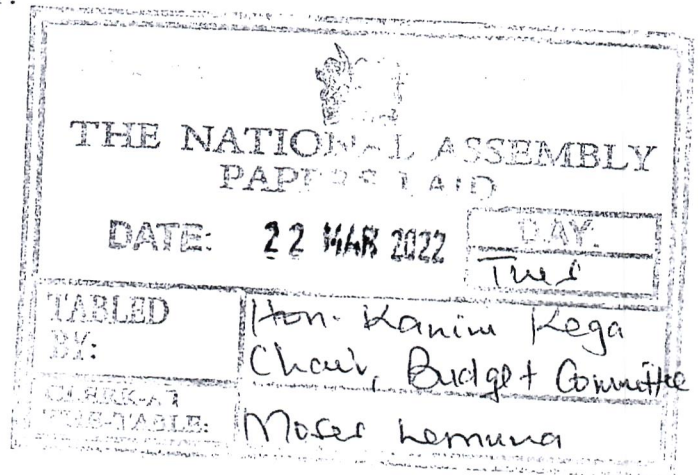 THE NATIONAL ASSEMBLY
PAPERS LAID
DATE: 22 MAR 2022
DAY:
Tues
TABLED
BY:
Hon. Kanini Kega
Chair, Budget Committee
CLERK-AT
THE-TABLE:
Moses Lemuna